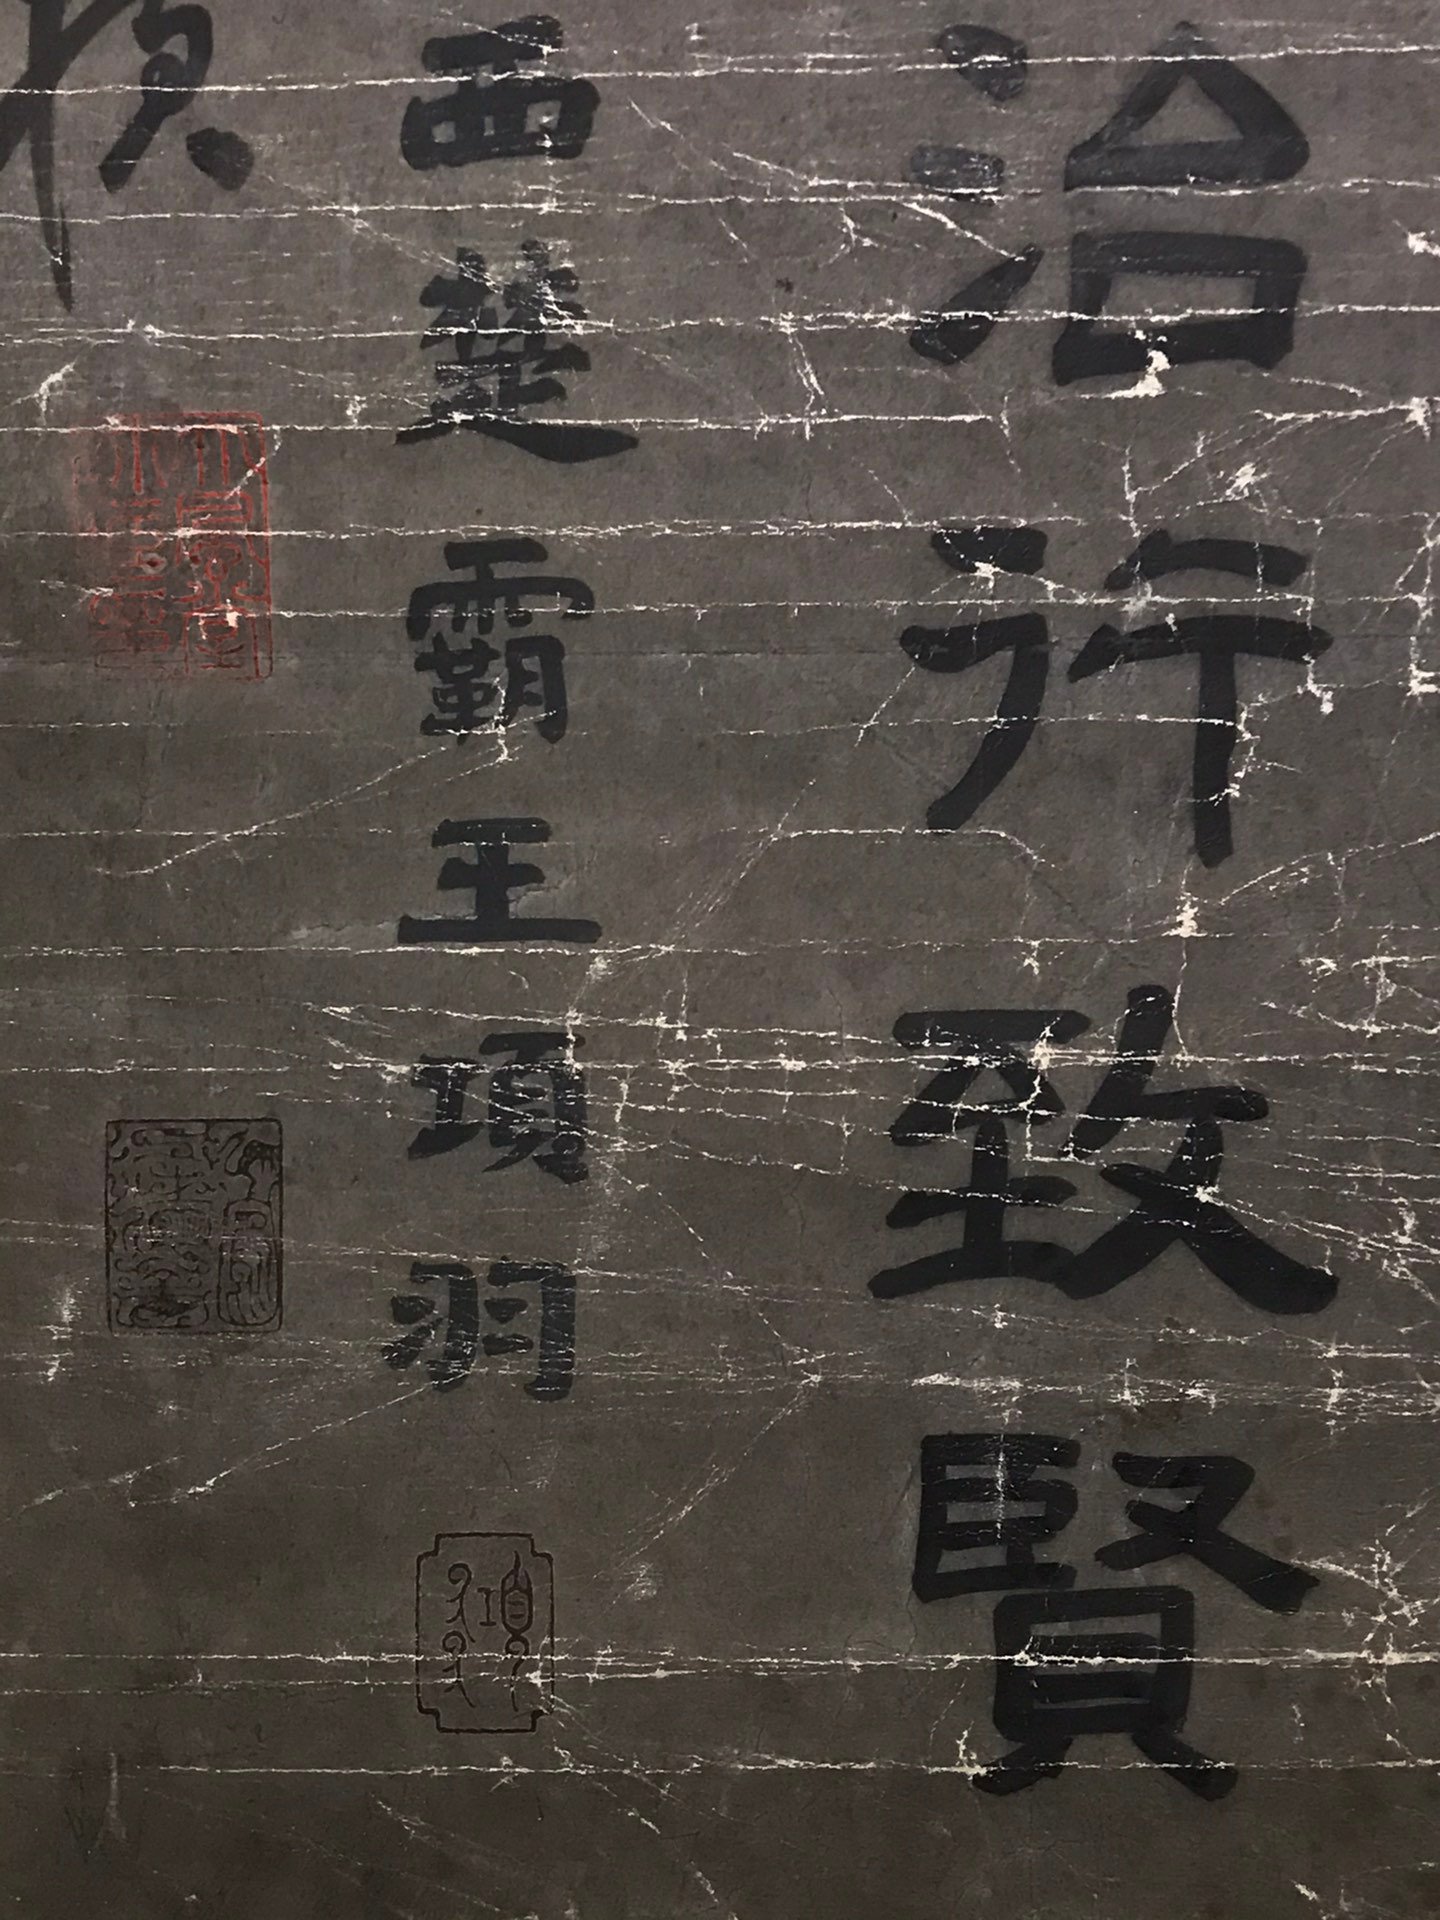 治行致賢
西楚霸王項羽
項羽